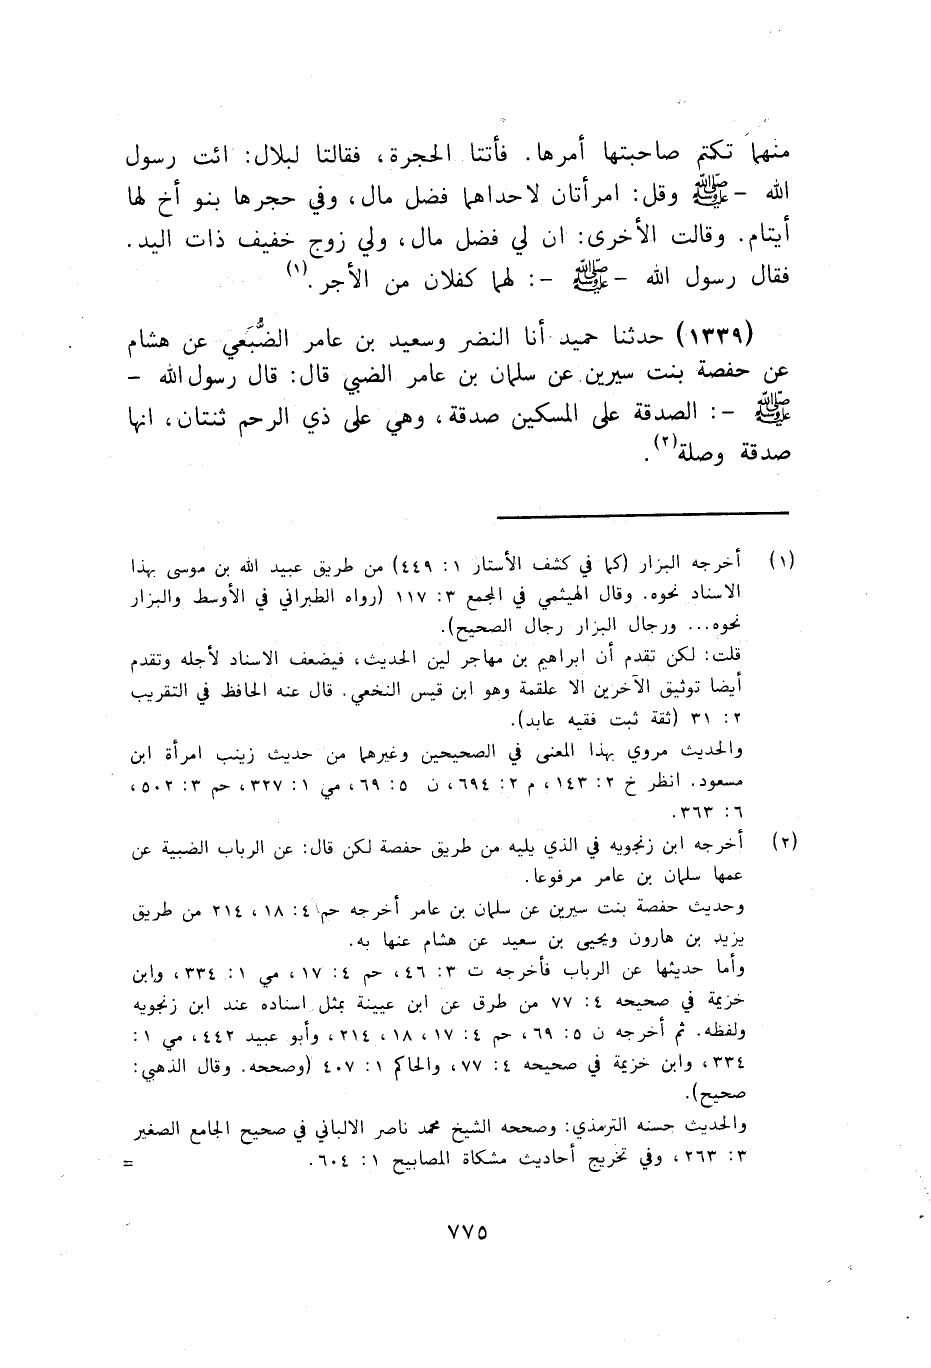 منهما تكتم صاحبتها أمرها. فأتتا الحجرة، فقالتا لبلال: ائت رسول
الله -ﷺ وقل: امرأتان لاحداهما فضل مال، وفي حجرها بنو أخ لها
أيتام. وقالت الأخرى: ان لي فضل مال، ولي زوج خفيف ذات اليد.
فقال رسول الله -ﷺ -: لهما كفلان من الأجر.(١)
(١٣٣٩) حدثنا حميد أنا النضر وسعيد بن عامر الضُّبَعي عن هشام
عن حفصة بنت سيرين عن سلمان بن عامر الضبي قال: قال رسول الله -
ﷺ -: الصدقة على المسكين صدقة، وهي على ذي الرحم ثنتان، انها
صدقة وصلة(٢).
(١) أخرجه البزار (كما في كشف الأستار ١: ٤٤٩) من طريق عبيد الله بن موسى بهذا
الاسناد نحوه. وقال الهيثمي في المجمع ٣: ١١٧ (رواه الطبراني في الأوسط والبزار
نحوه... ورجال البزار رجال الصحيح).
قلت: لكن تقدم أن ابراهيم بن مهاجر لين الحديث، فيضعف الاسناد لأجله وتقدم
أيضا توثيق الآخرين الا علقمة وهو ابن قيس النخعي. قال عنه الحافظ في التقريب
٢: ٣١ (ثقة ثبت فقيه عابد).
والحديث مروي بهذا المعنى في الصحيحين وغيرهما من حديث زينب امرأة ابن
مسعود. انظر خ ٢: ١٤٣، م ٢: ٦٩٤، ن ٥: ٦٩، مي ١: ٣٢٧، حم ٣: ٥٠٢،
٦: ٣٦٣.
(٢) أخرجه ابن زنجويه في الذي يليه من طريق حفصة لكن قال: عن الرباب الضبية عن
عمها سلمان بن عامر مرفوعا.
وحديث حفصة بنت سيرين عن سلمان بن عامر أخرجه حم ٤: ١٨، ٢١٤ من طريق
يزيد بن هارون ويحيى بن سعيد عن هشام عنها به.
وأما حديثها عن الرباب فأخرجه ت ٣: ٤٦، حم ٤: ١٧، مي ١: ٣٣٤، وابن
خزيمة في صحيحه ٤: ٧٧ من طرق عن ابن عيينة بمثل اسناده عند ابن زنجويه
ولفظه. ثم أخرجه ن ٥: ٦٩، حم ٤: ١٧، ١٨، ٢١٤، وأبو عبيد ٤٤٢، مي ١:
٣٣٤، وابن خزيمة في صحيحه ٤: ٧٧، والحاكم ١: ٤٠٧ (وصححه. وقال الذهبي:
صحيح).
والحديث حسنه الترمذي: وصححه الشيخ محمد ناصر الالباني في صحيح الجامع الصغير
٣: ٢٦٣، وفي تخريج أحاديث مشكاة المصابيح ١: ٦٠٤. =
٧٧٥